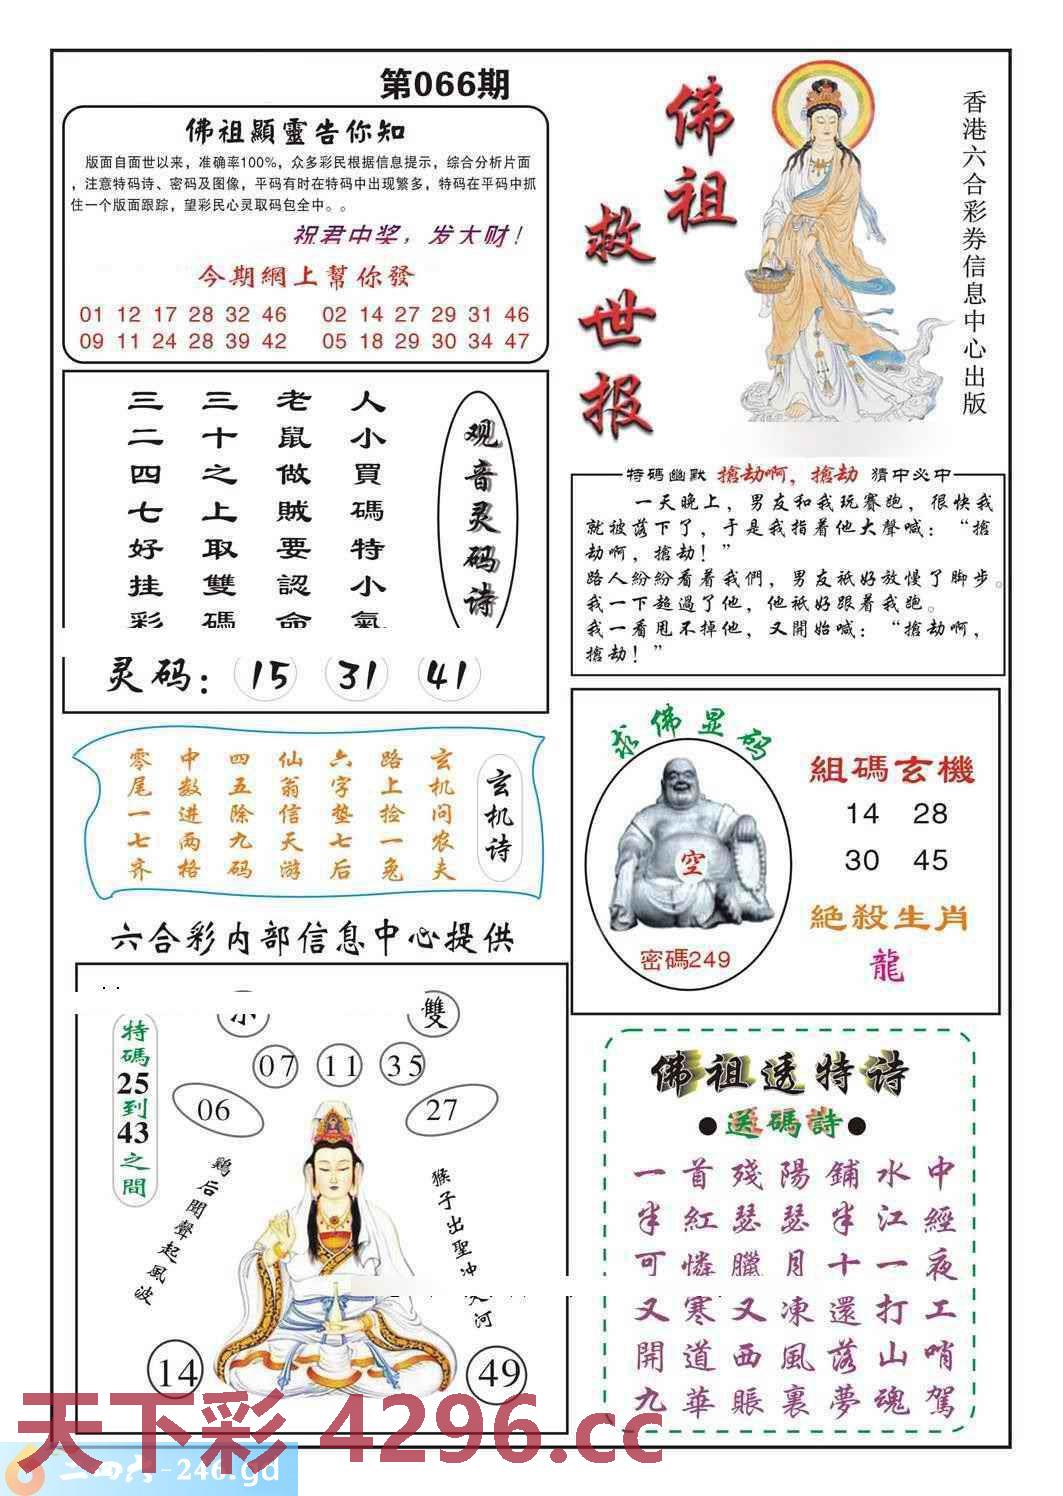 第066期
佛祖顯靈告你知
版面自面世以来，准确率100%，众多彩民根据信息提示，综合分析片面
，注意特码诗、密码及图像，平码有时在特码中出现繁多，特码在平码中抓
住一个版面跟踪，望彩民心灵取码包全中。。
祝君中奖，发大财！
今期網上幫你發
01 12 17 28 32 46 02 14 27 29 31 46
09 11 24 28 39 42 05 18 29 30 34 47
佛祖
救世报
香港六合彩券信息中心出版
观音灵码诗
人小買碼特小氣
老鼠做賊要認命
三十之上取雙碼
三二四七好挂彩
灵码： 15 31 41
特碼幽默 搶劫啊，搶劫 猜中必中
一天晚上，男友和我玩賽跑，很快我
就被落下了，于是我指着他大聲喊：“搶
劫啊，搶劫！”
路人紛紛看着我們，男友祇好放慢了脚步。
我一下超過了他，他祇好跟着我跑。
我一看甩不掉他，又開始喊：“搶劫啊，
搶劫！”
玄机诗
玄机问农夫
路上捡一兔
六字垫七后
仙翁信天游
四五除九码
中数进两格
零尾一七齐
求佛显码
空
密碼249
組碼玄機
14 28
30 45
絕殺生肖
龍
六合彩内部信息中心提供
雙
07 11 35
06 27
特碼25到43之間
鷄后聞聲起風波
猴子出聖冲天河
14 49
佛祖透特诗
●送碼詩●
一首殘陽鋪水中
半紅瑟瑟半江經
可憐臘月十一夜
又寒又凍還打工
開道西風落山哨
九華賬裏夢魂駕
天下彩 4296.cc
二四六-246.gd